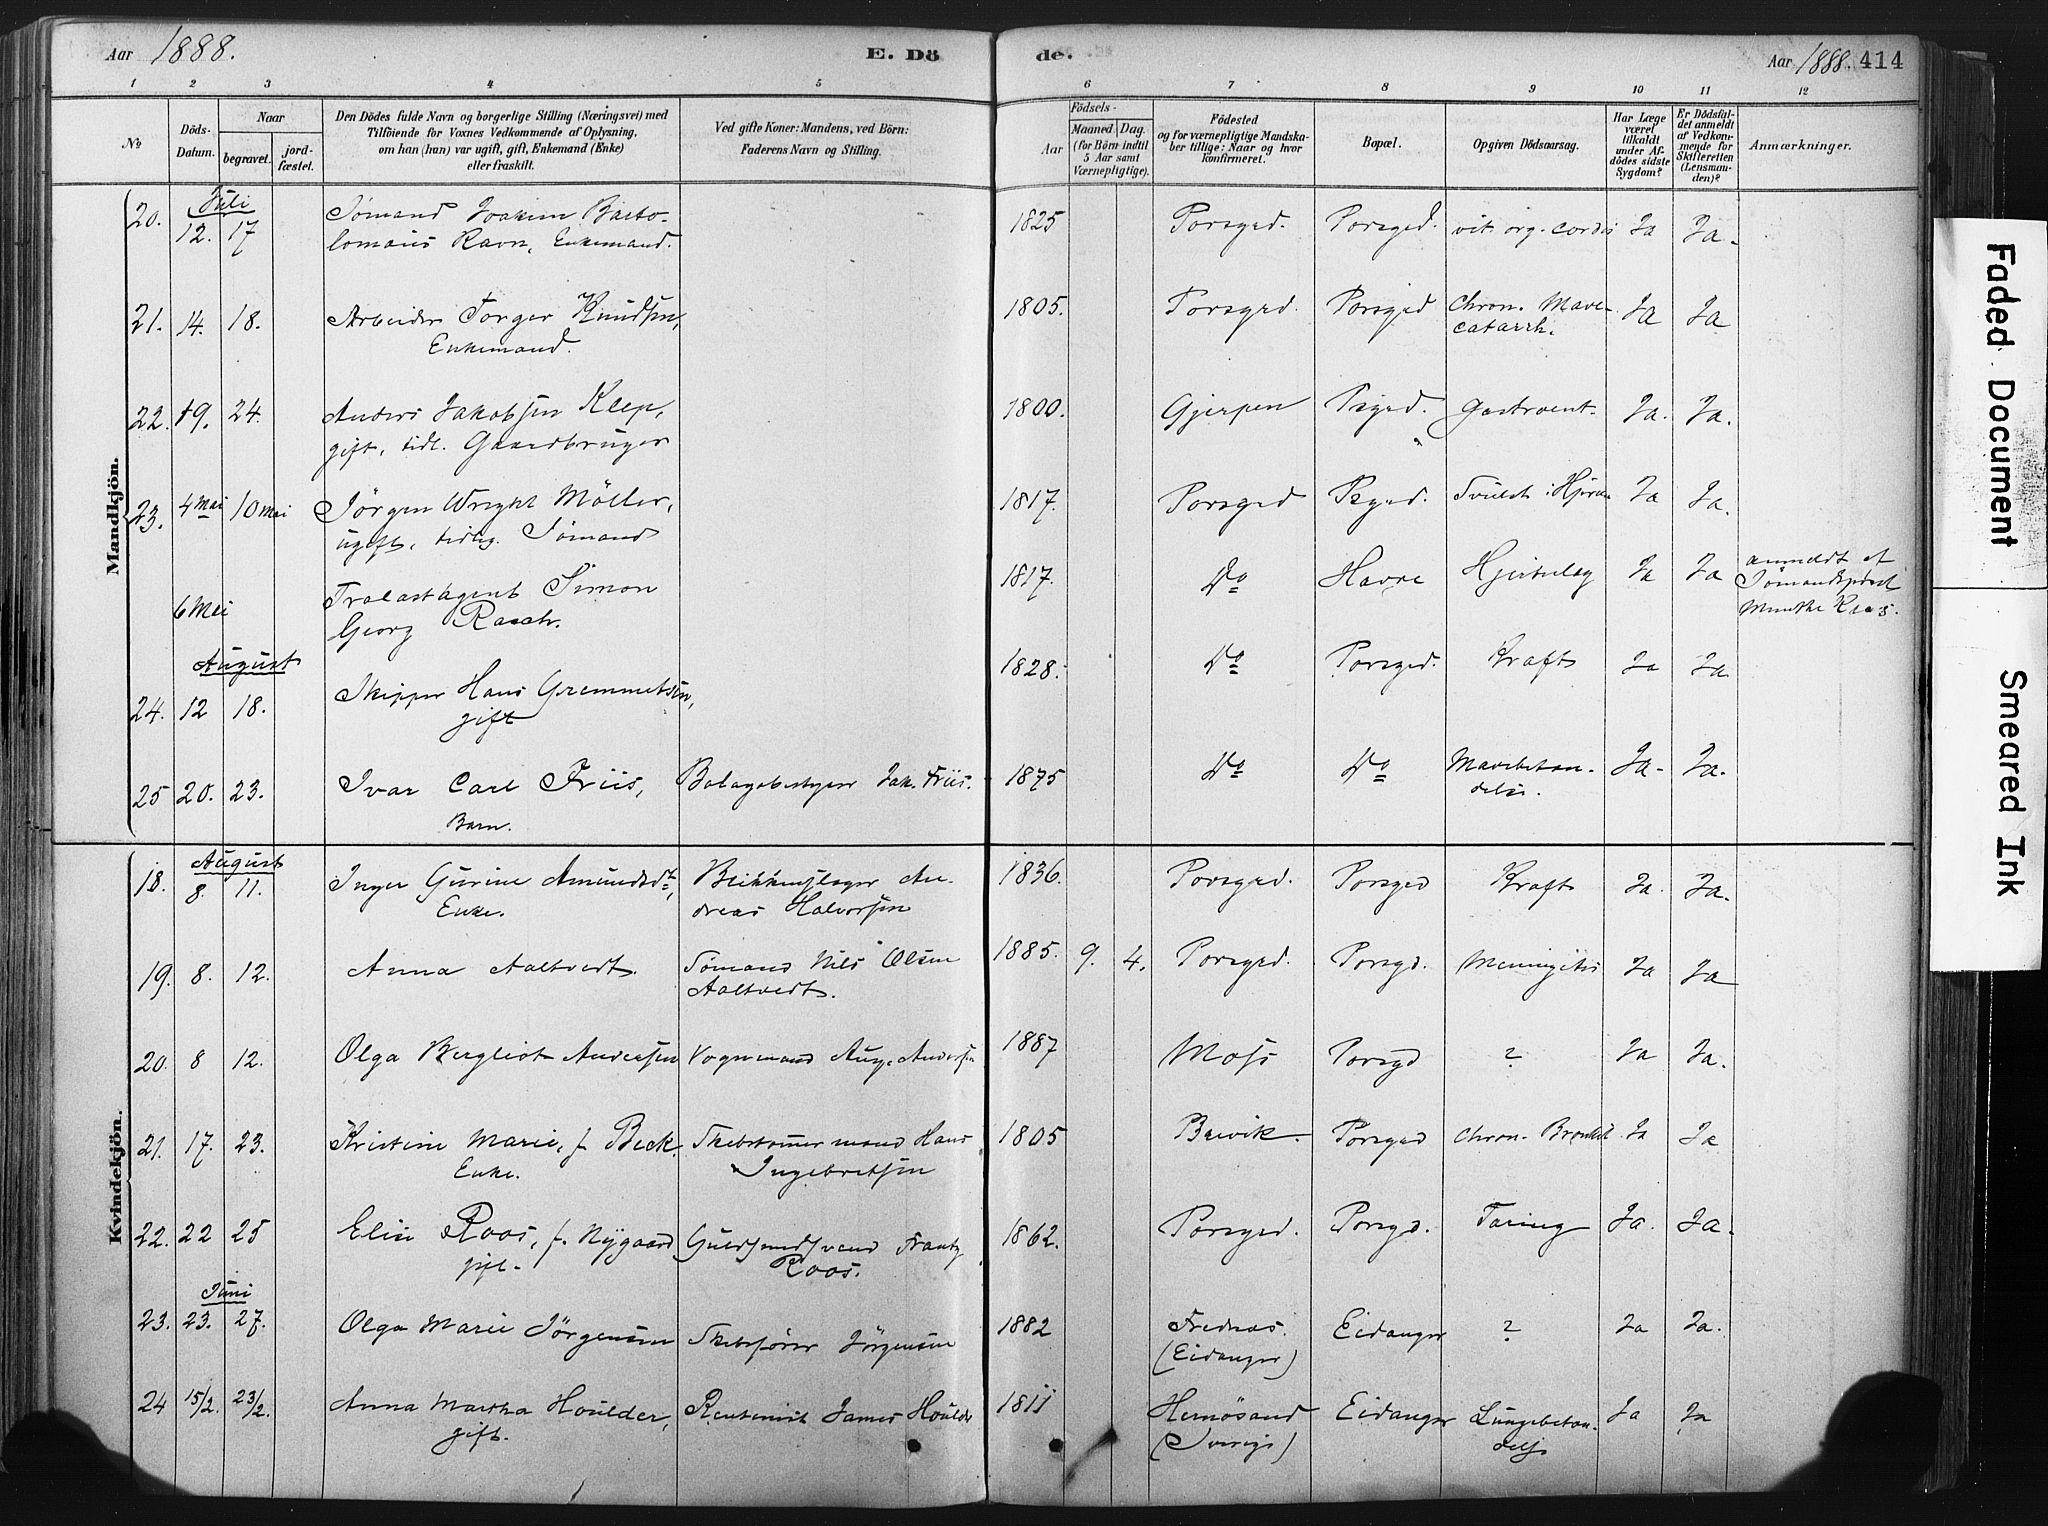 Aar 1888. E. Dö
1 2 3 4 5
№ Döds-Datum. Naar begravet. jord-fæstet. Den Dödes fulde Navn og borgerlige Stilling (Næringsvei) med Tilföiende for Voxnes Vedkommende af Oplysning, om han (hun) var ugift, gift, Enkemand (Enke) eller fraskilt. Ved gifte Koner: Mandens, ved Börn: Faderens Navn og Stilling.
de. Aar 1888. 414
6 7 8 9 10 11 12
Födsels- Aar Maaned Dag. (for Börn indtil 5 Aar samt Værnepligtige). Födested og for værnepligtige Mandska-ber tillige: Naar og hvor konfirmeret. Bopæl. Opgiven Dödsaarsag. Har Læge været tilkaldt under Af-dödes sidste Sygdom? Er Dödsfal-det anmeldt af Vedkom-mende for Skifteretten (Lensman-den)? Anmærkninger.
Mandkjön.
Juli
20. 12. 17 Sømand Joakim Barto- 1825 Porsgrd. Porsgrd. vit. org. cordis Ja Ja.
lomæus Ravn, Enkemand.
21. 14. 18. Arbeider Torger Knudsen, 1805. Porsgrd. Porsgrd Chron. Mave- Ja Ja
Enkemand. catarrh.
22. 19. 24. Anders Jakobsen Klep, 1800. Gjerpen Psgrd. Gastroent. Ja. Ja.
gift, tidl. Gaardbruger
23. 4 Mai 10 Mai Jörgen Wright Möller, 1817. Porsgrd Psgrd. Svulst i Hjernen Ja Ja.
ugift, tidlig. Sömand
6 Mai Trælastagent Simon 1817. Do Havre Hjerteslag Ja Ja anmeldt af
Georg Rasch. Sömandsprest
Munthe Kaas.
August
24. 12 18. Skipper Hans Gremmetsen, 1828. Do Porsgrd. Kræft Ja Ja.
gift
25 20. 23. Ivar Carl Friis, Bolagsbestyrer Jak. Friis. 1875 Do Do Mavebetæn- Ja. Ja.
Barn. delse.
Kvindekjön.
August
18. 8. 11. Inger Gurine Amundsdt, Blikkenslager An- 1836. Porsgrd. Porsgrd Kræft Ja. Ja.
Enke. dreas Halvorsen
19. 8. 12. Anna Aaltvedt. Sömand Nils Olsen 1885. 9. 4. Porsgrd. Porsgd. Meningitis Ja Ja
Aaltvedt.
20. 8 12. Olga Bergliot Andersen Vognmand Aug. Andersen 1887 Moss Porsgd ? Ja Ja.
21. 17. 23. Kristine Marie, f. Beck. Skibstømmermand Hans 1805 Brevik. Porsgrd Chron. Bronkit. Ja Ja
Enke. Ingebretsen
22. 22 25 Elise Roos, f. Nygaard Guldsmedsvend Frantz 1862. Porsgrd. Porsgd. Tæring Ja. Ja.
gift. Roos.
Juni
23. 23. 27. Olga Marie Jörgensen Skibsfører Jörgensen 1882 Frednæs. Eidanger ? Ja Ja.
(Eidanger)
24 15/2. 23/2. Anna Martha Houlder, Rentenist James Houlder 1811 Hernösand Eidanger Lungebetæn- Ja Ja
gift. (Sverige) delse
Faded Document
Smeared Ink